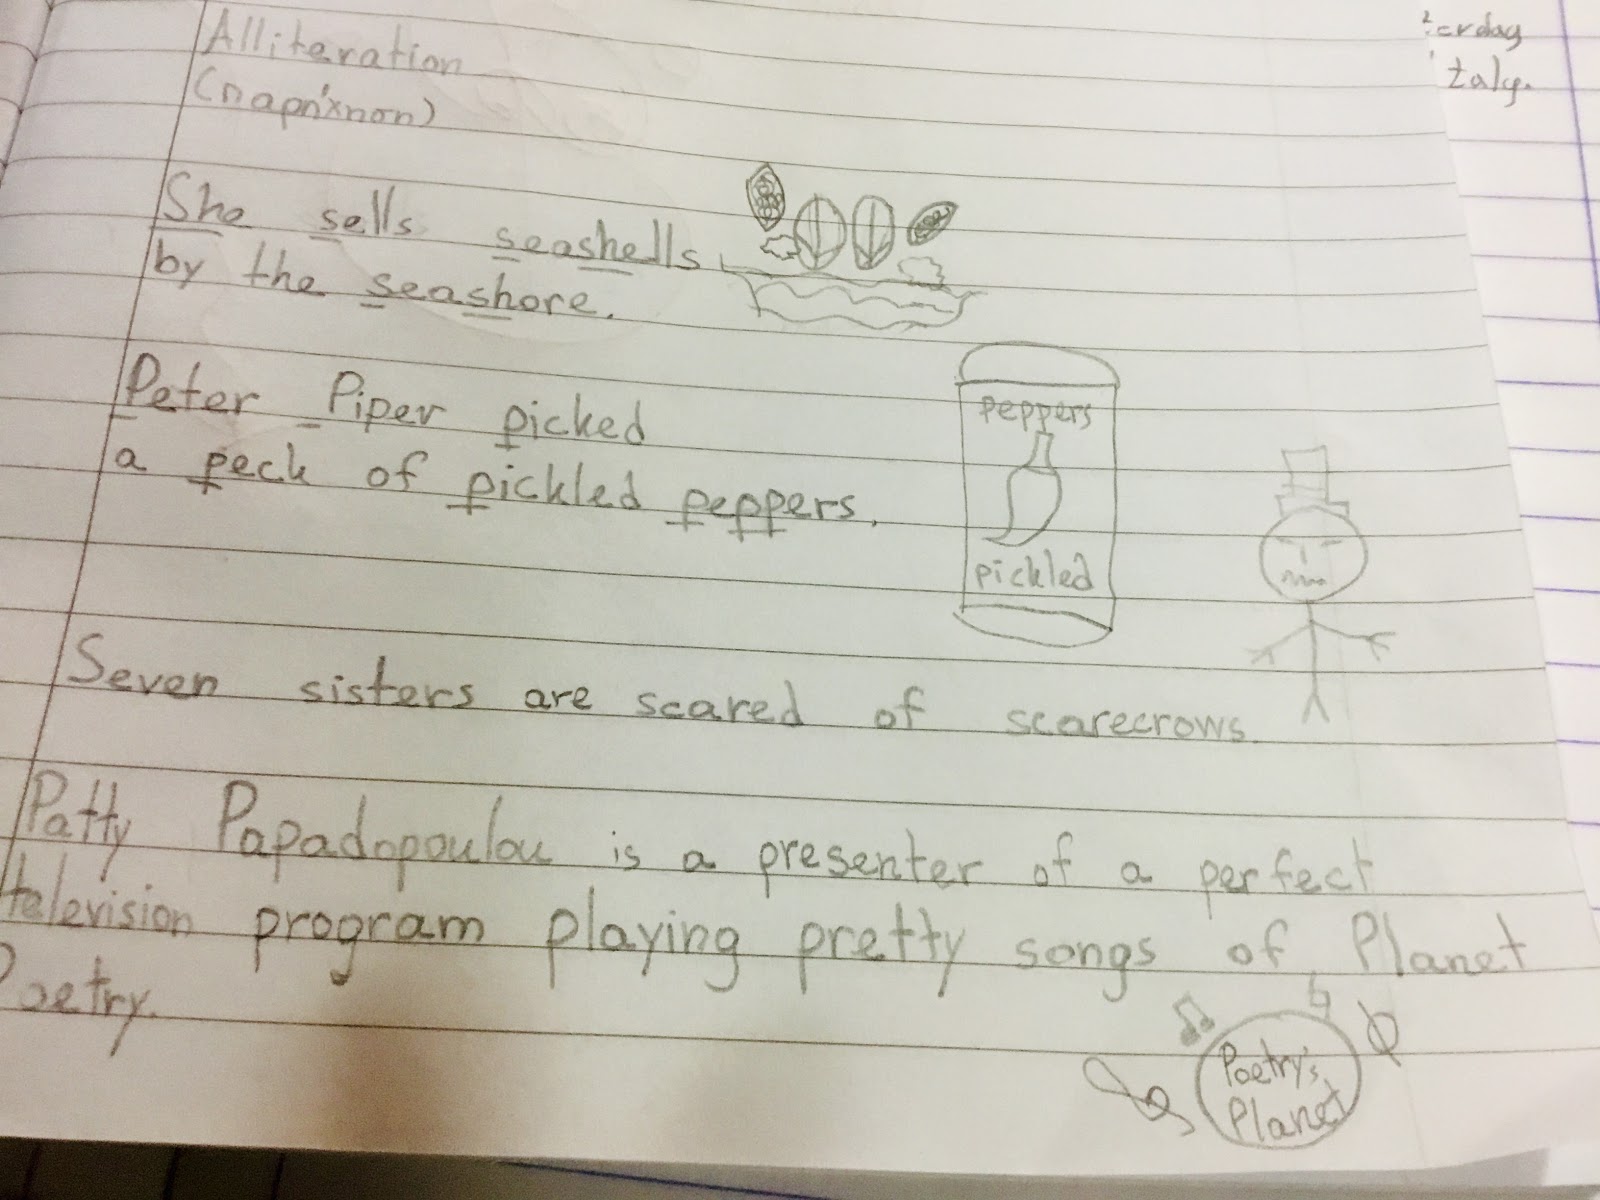 Alliteration
(παρήχηση)
She sells seashells
by the seashore.
Peter Piper picked
a peck of pickled peppers.
peppers
pickled
Seven sisters are scared of scarecrows.
Patty Papadopoulou is a presenter of a perfect
television program playing pretty songs of Planet
Poetry.
Poetry's
Planet
erday
taly.